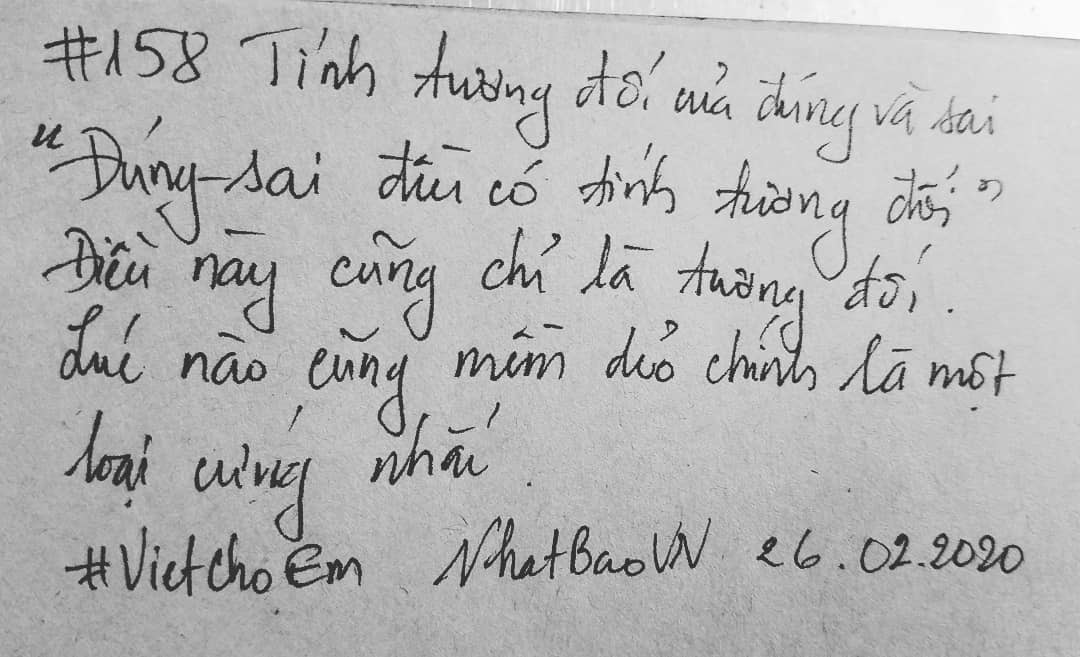 #158 Tính tương đối của đúng và sai
"Đúng-sai đều có tính tương đối"
Điều này cũng chỉ là tương đối.
Lúc nào cũng mềm dẻo chính là một
loại cứng nhắc.
#VietchoEm NhatBaoVN 26.02.2020